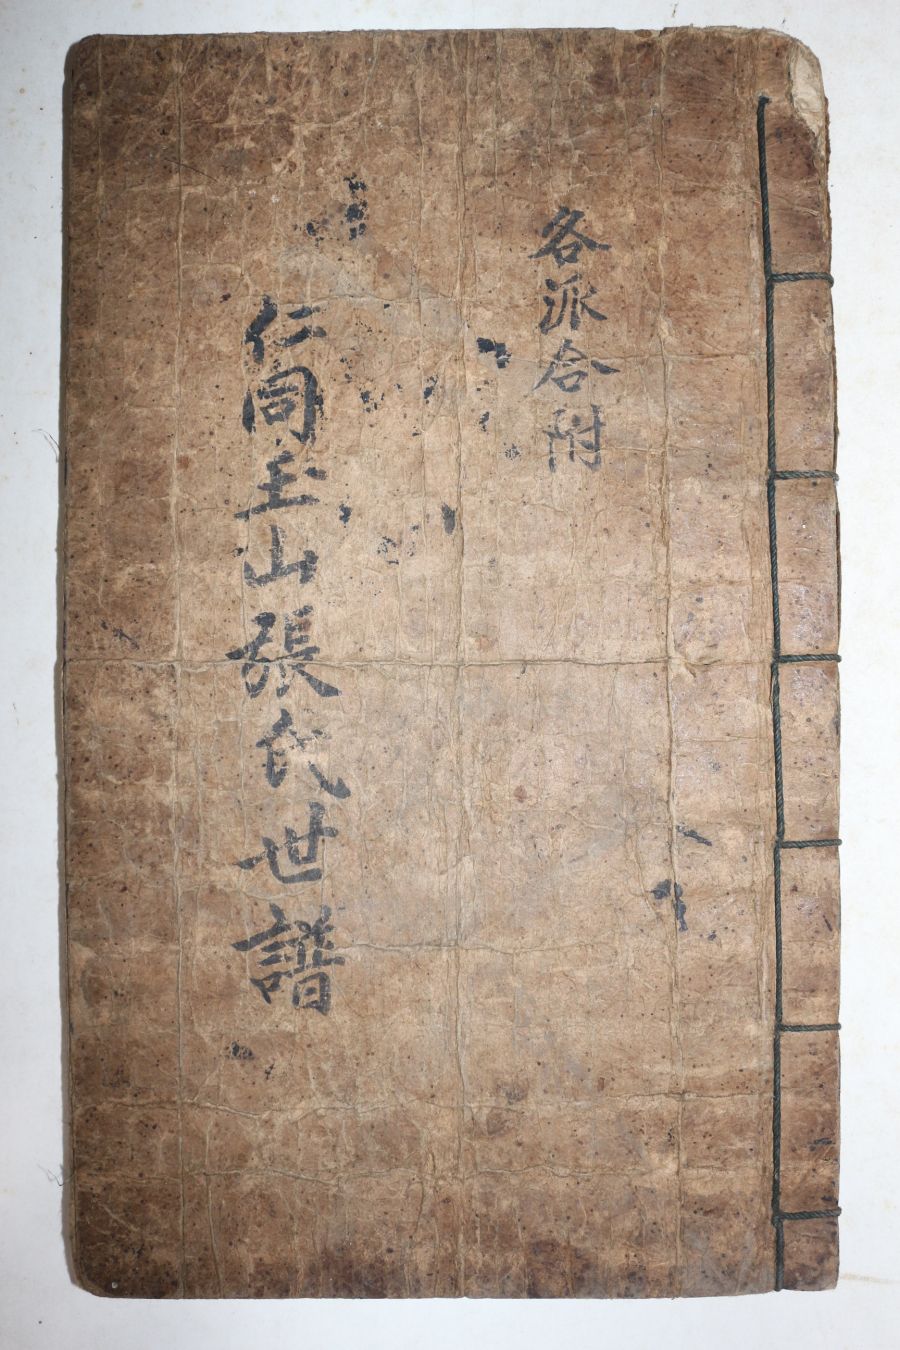 各派合附
仁同玉山張氏世譜